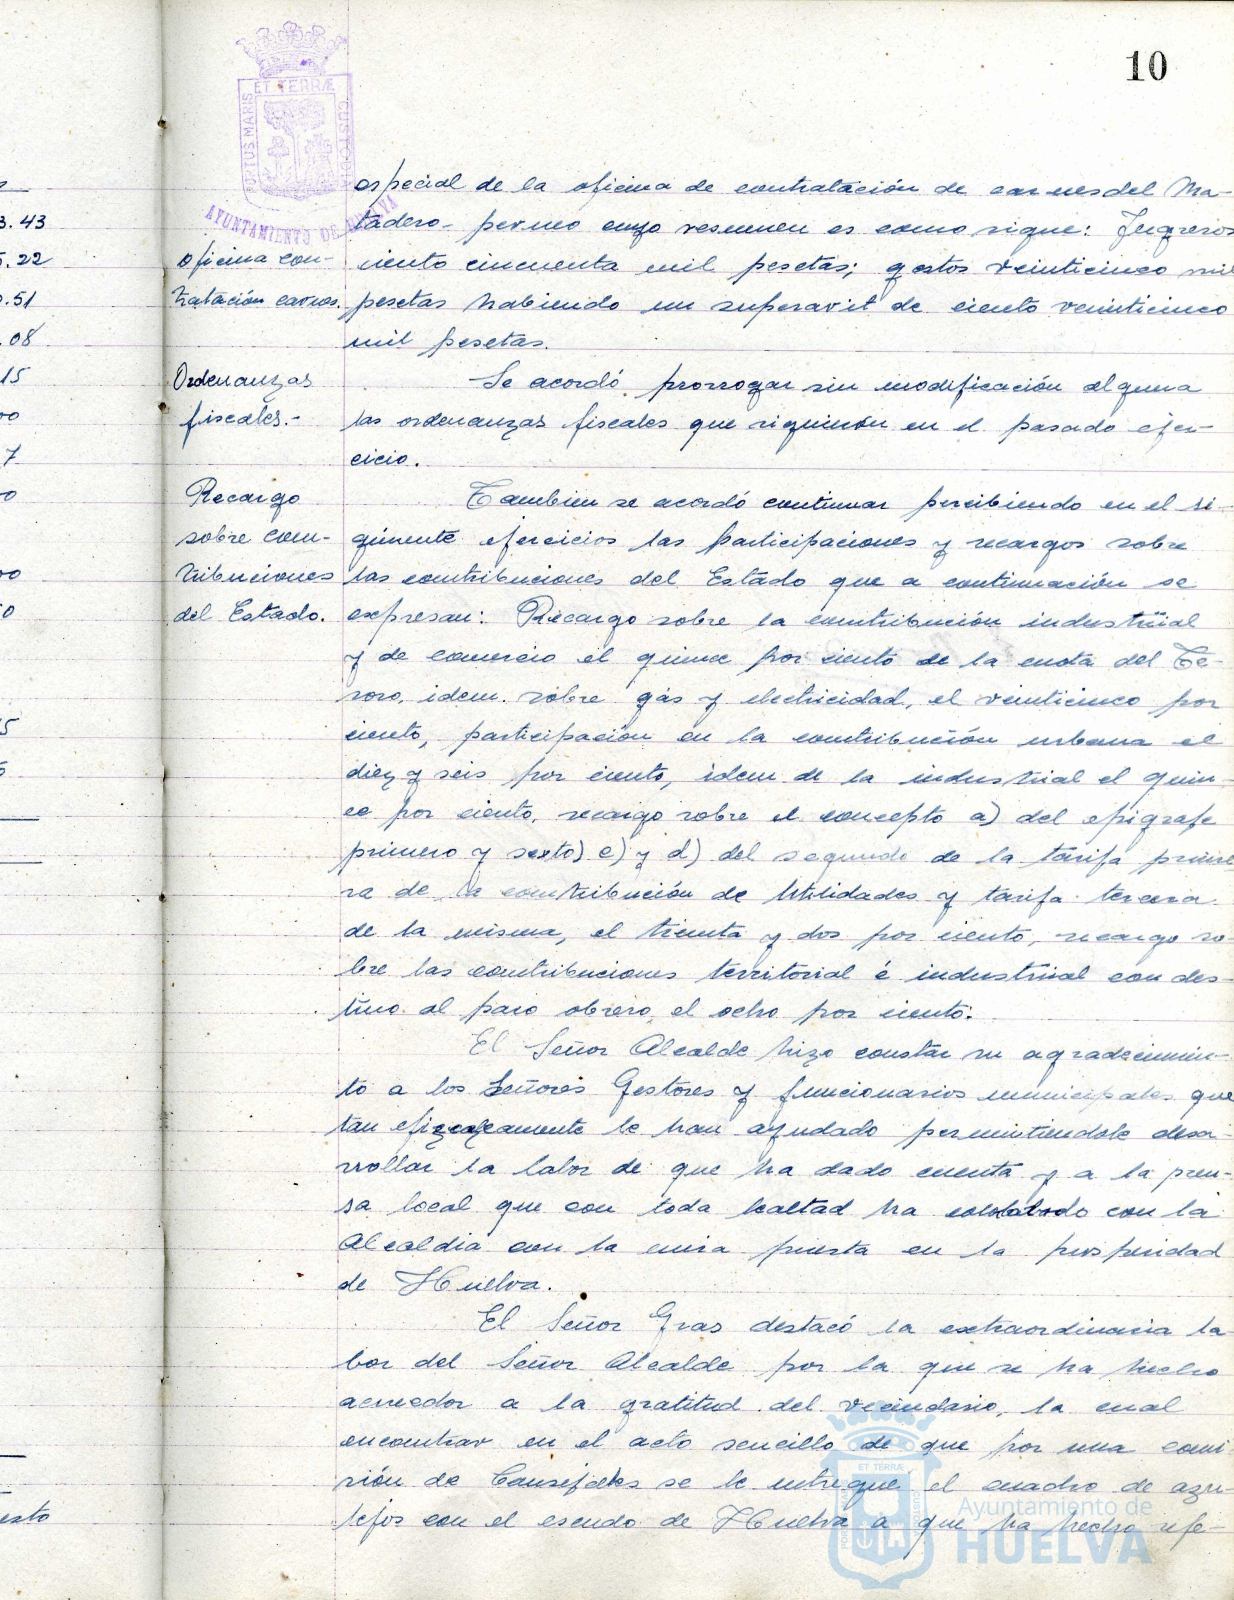 10
PORTUS MARIS ET TERRÆ CUSTODIA
AYUNTAMIENTO DE HUELVA
3.43
5.22
.51
.08
15
00
7
esto
Oficina con-
tratación carnes.
Ordenanzas
fiscales.-
Recargo
sobre con-
tribuciones
del Estado.
especial de la oficina de contratación de carnes del Ma-
tadero- cuyo resumen es como sigue: Ingresos
ciento cincuenta mil pesetas; gastos veinticinco mil
pesetas habiendo un superavit de ciento veinticinco
mil pesetas.
Se acordó prorrogar sin modificación alguna
las ordenanzas fiscales que siguieron en el pasado ejer-
cicio.
Tambien se acordó continuar percibiendo en el si-
guiente ejercicios las participaciones y recargos sobre
las contribuciones del Estado que a continuación se
expresan: Recargo sobre la contribución industrial
y de comercio el quince por ciento de la cuota del Te-
soro, idem. sobre gas y electricidad, el veinticinco por
ciento, participación en la contribución urbana el
diez y seis por ciento, idem de la industrial el quin-
ce por ciento, recargo sobre el concepto a) del epigrafe
primero y sexto) c) y d) del segundo de la tarifa prime-
ra de la contribución de Utilidades y tarifa tercera
de la misma, el treinta y dos por ciento, recargo so-
bre las contribuciones territorial é industrial con des-
tino al paro obrero, el ocho por ciento.
El Señor Alcalde hizo constar su agradecimien-
to a los Señores Gestores y funcionarios municipales que
tan eficazcamente le han ayudado permitiendole desa-
rrollar la labor de que ha dado cuenta y a la pren-
sa local que con toda lealtad ha colabrado con la
Alcaldia con la mira puesta en la prosperidad
de Huelva.
El Señor Gras destacó la extraordinaria la-
bor del Señor Alcalde por la que se ha hecho
acreedor a la gratitud del vecindario, la cual
encontrar en el acto sencillo de que por una comi-
sión de Concejales se le entregue el cuadro de azu-
lejos con el escudo de Huelva a que ha hecho refe-
Ayuntamiento de
HUELVA